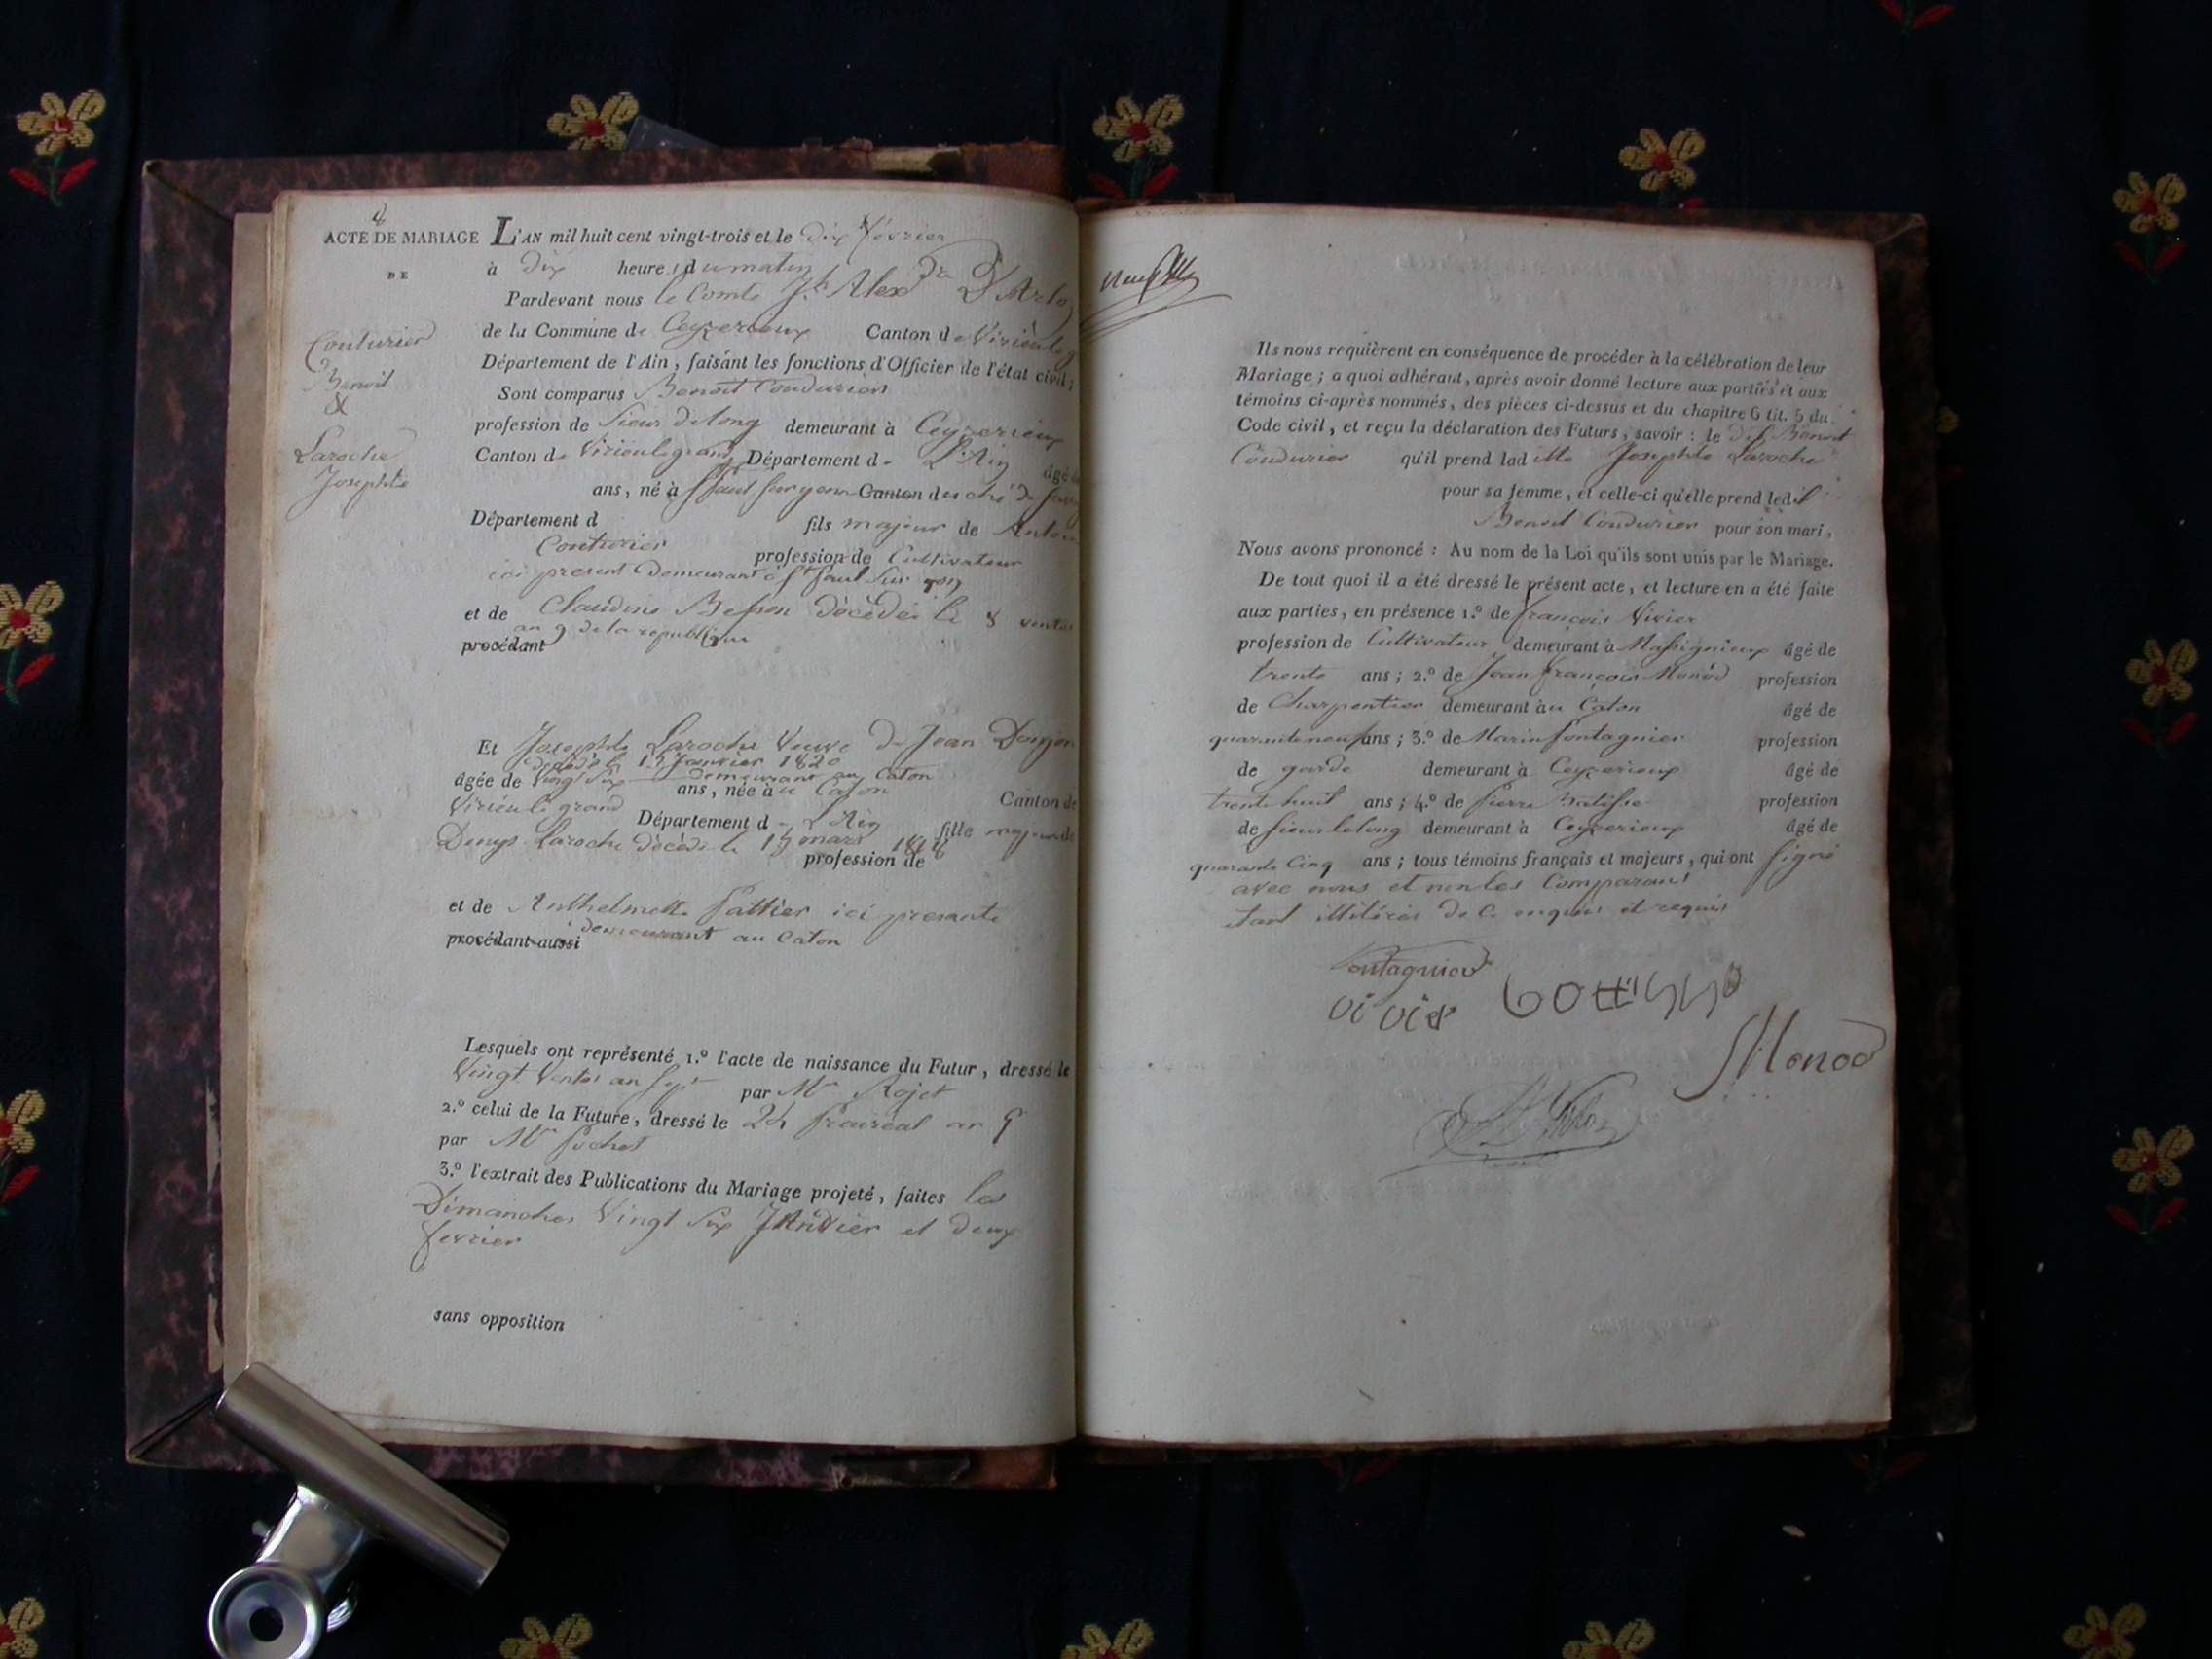 8
ACTE DE MARIAGE
DE
Couturier
Benoit
&
Laroche
Josephte
L'AN mil huit cent vingt-trois et le dix février
à dix heures du matin
Pardevant nous le Comte Jh Alexdre D'Arloz
de la Commune de Ceyzerieux Canton de Virieu le g
Département de l'Ain, faisant les fonctions d'Officier de l'état civil;
Sont comparus Benoit Coudurier
profession de Sieur de long demeurant à Ceyzerieux
Canton de Virieu le grand Département de L'Ain âgé de
ans, né à St Paul sur yenne Canton duché de
Département d fils majeur de Antoine
Couturier profession de Cultivateur
ici présent demeurant à St Paul sur
et de Claudine Besson décédée le 8 ventos
an 9 de la république
procédant
Et Josephte Laroche Veuve de Jean Doujon
décédé le 15 Janvier 1820
âgée de vingt six demeurant au Caton
ans, née à u Caton Canton de
Virieu le grand Département de L'Ain fille majeure de
Denys Laroche décédé le 15 mars 1818
profession de
et de Anthelmette Pattier ici presente
demeurant au Caton
procédant aussi
Lesquels ont représenté 1.º l'acte de naissance du Futur, dressé le
Vingt Ventos an sept par Mr Rojet
2.º celui de la Future, dressé le 24 Prairéal an
par Mr Pochet
3.º l'extrait des Publications du Mariage projeté, faites les
Dimanches Vingt Six JAnvier et deux
fevrier
sans opposition
neuf
Ils nous requièrent en conséquence de procéder à la célébration de leur
Mariage; a quoi adhérant, après avoir donné lecture aux parties et aux
témoins ci-après nommés, des pièces ci-dessus et du chapitre 6 tit. 5 du
Code civil, et reçu la déclaration des Futurs, savoir: le dit Benoit
Coudurier qu'il prend lad itte Josephte Laroche
pour sa femme, et celle-ci qu'elle prend led it
Benoit Coudurier pour son mari,
Nous avons prononcé: Au nom de la Loi qu'ils sont unis par le Mariage.
De tout quoi il a été dressé le présent acte, et lecture en a été faite
aux parties, en présence 1.º de françois Vivier
profession de Cultivateur demeurant à Massignieux âgé de
trente ans; 2.º de Jean françois Monod profession
de Charpentier demeurant àu Caton âgé de
quarante neuf ans; 3.º de Marin fontagnier profession
de garde demeurant à Ceyzerieux âgé de
trente huit ans; 4.º de Pierre Batisse profession
de sieur lelong demeurant à Ceyzerieux âgé de
quarante Cinq ans; tous témoins français et majeurs, qui ont signé
avec nous et non les Comparans
étant illitérés de C. enquis et requis
fontagnier
vivier
Monod